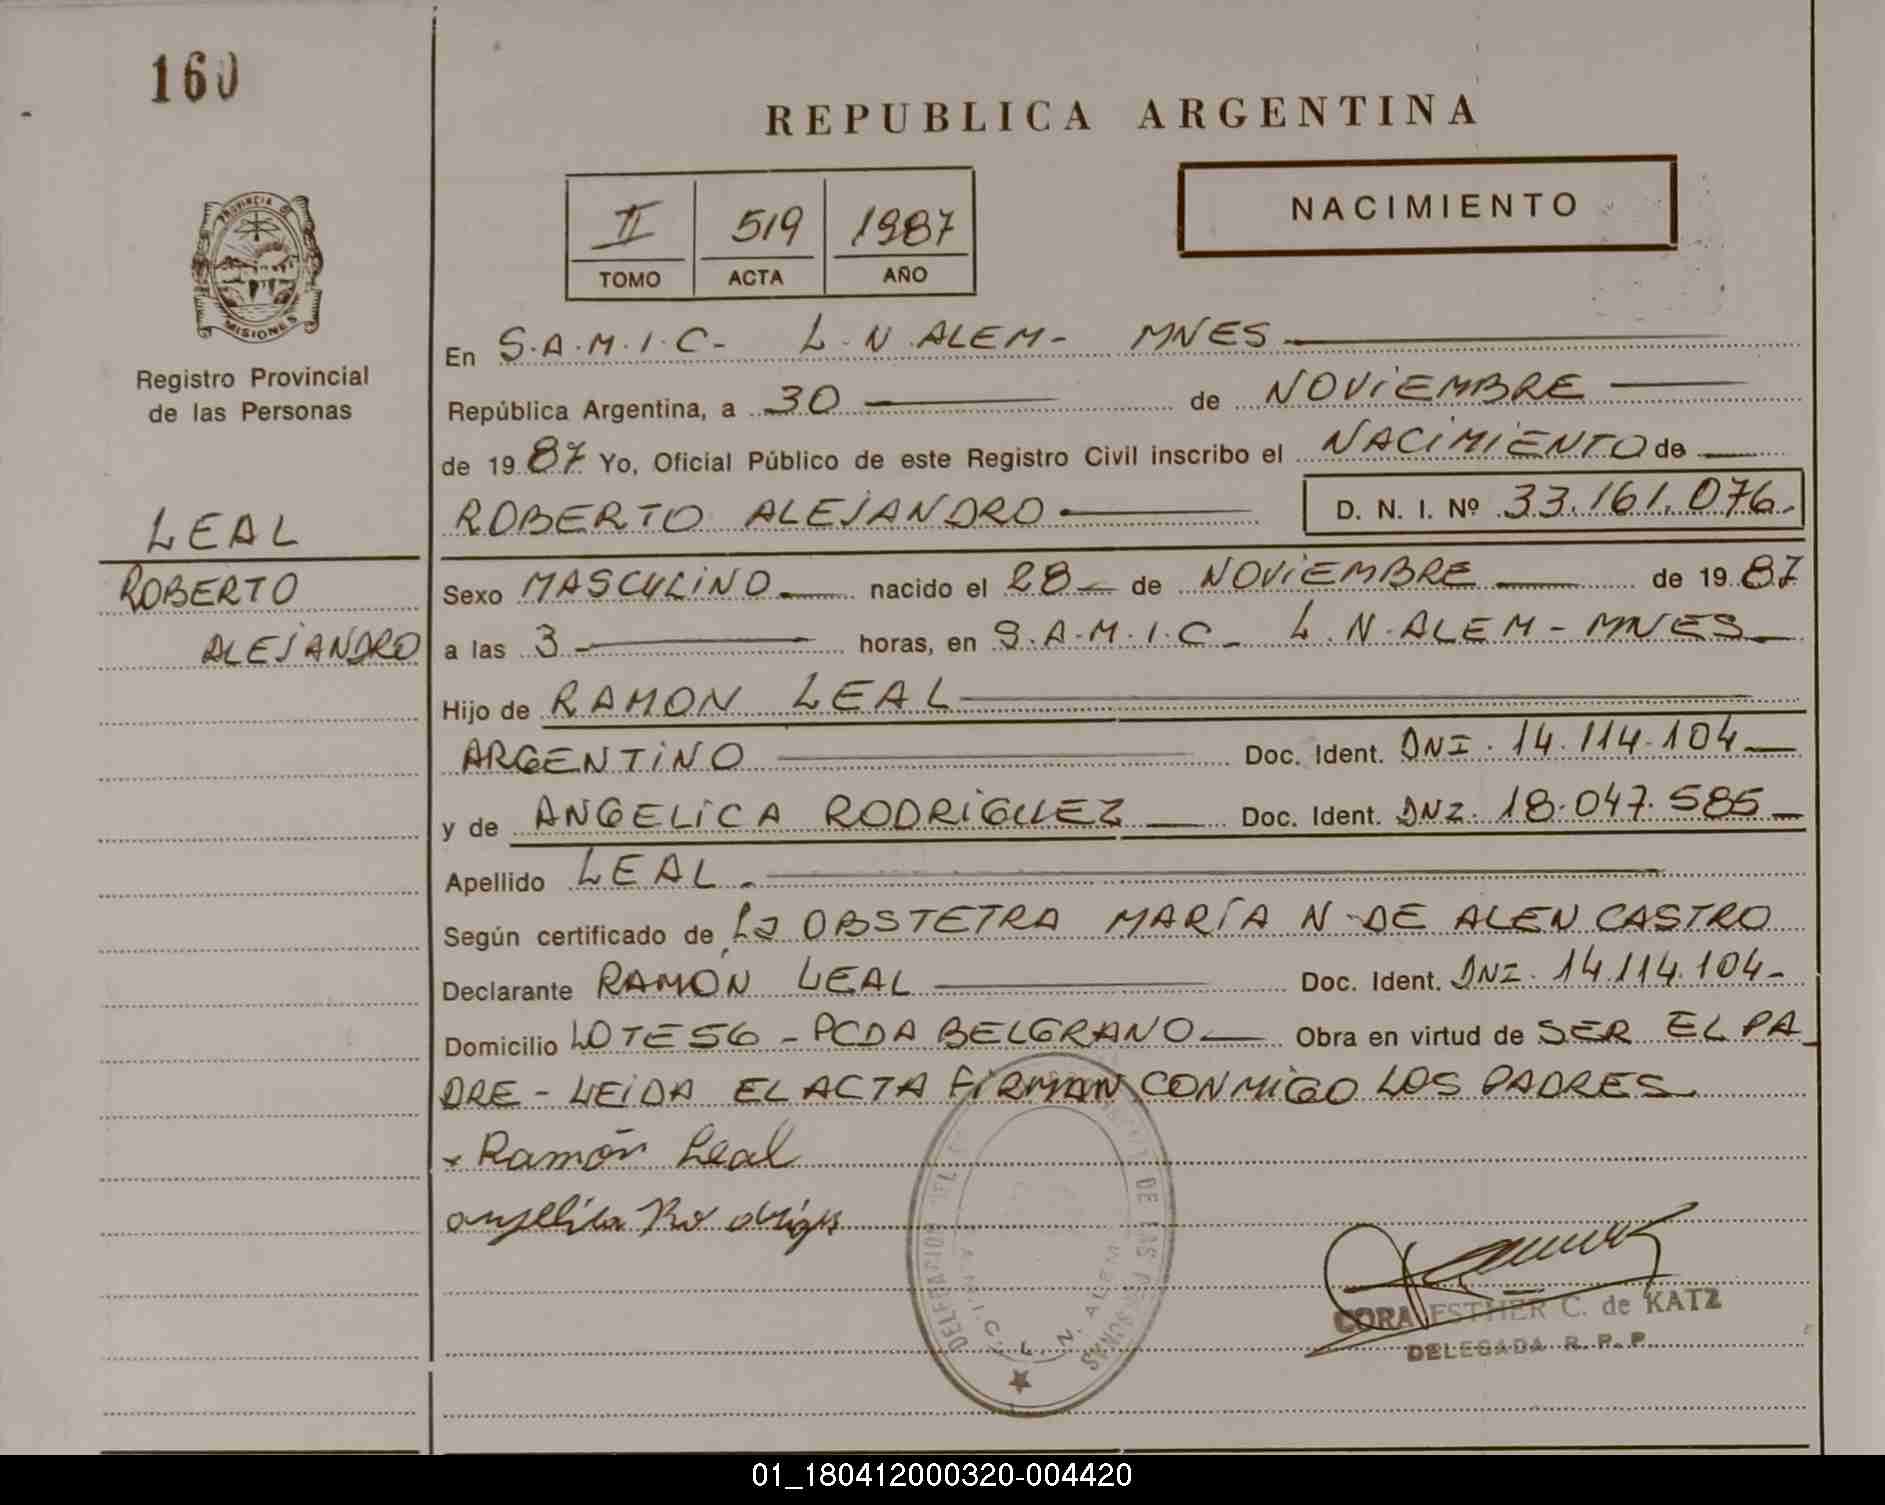 160
REPUBLICA ARGENTINA
II 519 1987
TOMO ACTA AÑO
NACIMIENTO
PROVINCIA DE
MISIONES
Registro Provincial
de las Personas
LEAL
ROBERTO
ALEJANDRO
En S.A.M.I.C- L.N.ALEM- MNES
República Argentina, a 30 de NOVIEMBRE
de 1987 Yo, Oficial Público de este Registro Civil inscribo el NACIMIENTO de
ROBERTO ALEJANDRO D. N. I. Nº 33.161.076.
Sexo MASCULINO nacido el 28 de NOVIEMBRE de 1987
a las 3 horas, en S.A.M.I.C- L.N.ALEM-MNES
Hijo de RAMON LEAL
ARGENTINO Doc. Ident. DNI. 14.114.104
y de ANGELICA RODRIGUEZ Doc. Ident. DNI. 18.047.585
Apellido LEAL.
Según certificado de La OBSTETRA MARÍA N DE ALEN CASTRO
Declarante RAMÓN LEAL Doc. Ident. DNI. 14.114.104-
Domicilio LOTE 56-PCDA BELGRANO Obra en virtud de SER EL PA
DRE-LEIDA EL ACTA FIRMAN CONMIGO LOS PADRES
Ramón Leal
angelica Rodrigues
DELEGACION DE LAS PERSONAS
S.A.M.I.C. L.N. ALEM
CORA ESTHER C. de KATZ
DELEGADA R.P.P.
01_180412000320-004420